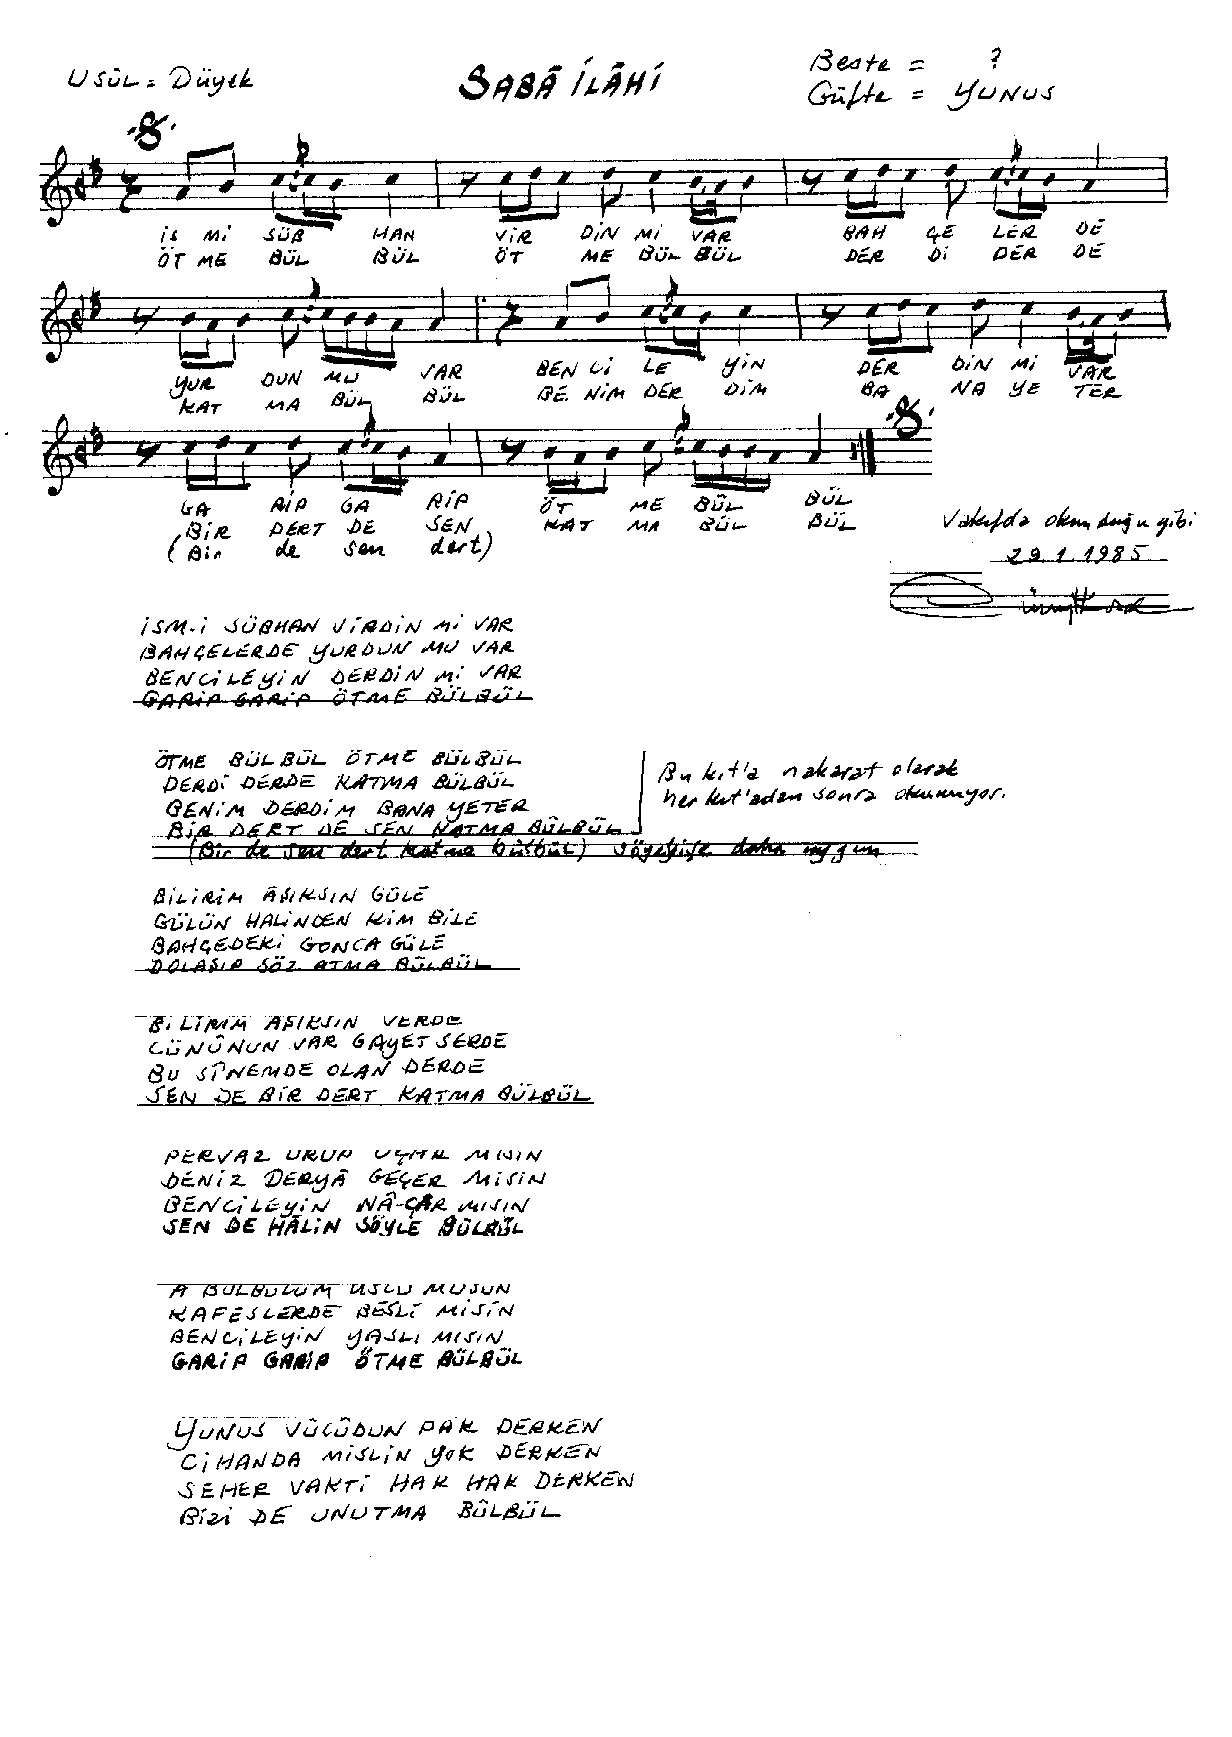 USÛL = Düyek
SABÂ İLÂHİ
Beste = ?
Güfte = YUNUS
İS Mİ SÜB HAN VİR DİN Mİ VAR BAH ÇE LER DE
ÖT ME BÜL BÜL ÖT ME BÜL BÜL DER Dİ DER DE
YUR DUN MU VAR BEN Cİ LE YİN DER DİN Mİ VAR
KAT MA BÜL BÜL BE NİM DER DİM BA NA YE TER
GA RİP GA RİP ÖT ME BÜL BÜL
BİR DERT DE SEN KAT MA BÜL BÜL
(Bir de sen dert)
Vakıfda okunduğu gibi
29.1.1985
İSM-İ SÜBHAN VİRDİN Mİ VAR
BAHÇELERDE YURDUN MU VAR
BENCİLEYİN DERDİN Mİ VAR
GARİP GARİP ÖTME BÜLBÜL
ÖTME BÜLBÜL ÖTME BÜLBÜL
DERDİ DERDE KATMA BÜLBÜL
BENİM DERDİM BANA YETER
BİR DERT DE SEN KATMA BÜLBÜL
(Bir de sen dert katma bülbül) söyleyişe daha uygun
Bu kıt'a nakarat olarak
her kıt'adan sonra okunuyor.
BİLİRİM ÂŞIKSIN GÜLE
GÜLÜN HALİNDEN KİM BİLE
BAHÇEDEKİ GONCA GÜLE
DOLAŞIP SÖZ ATMA BÜLBÜL
BİLİRİM AŞIKSIN VERDE
CÜNÛNUN VAR GAYET SERDE
BU SÎNEMDE OLAN DERDE
SEN DE BİR DERT KATMA BÜLBÜL
PERVAZ URUP UÇAR MISIN
DENİZ DERYÂ GEÇER MİSİN
BENCİLEYİN NÂ-ÇÂR MISIN
SEN DE HÂLİN SÖYLE BÜLBÜL
A BÜLBÜLÜM USLU MUSUN
KAFESLERDE BESLİ MİSİN
BENCİLEYİN YASLI MISIN
GARİP GARİP ÖTME BÜLBÜL
YUNUS VÜCÛDUN PAK DERKEN
CİHANDA MİSLİN YOK DERKEN
SEHER VAKTİ HAK HAK DERKEN
BİZİ DE UNUTMA BÜLBÜL